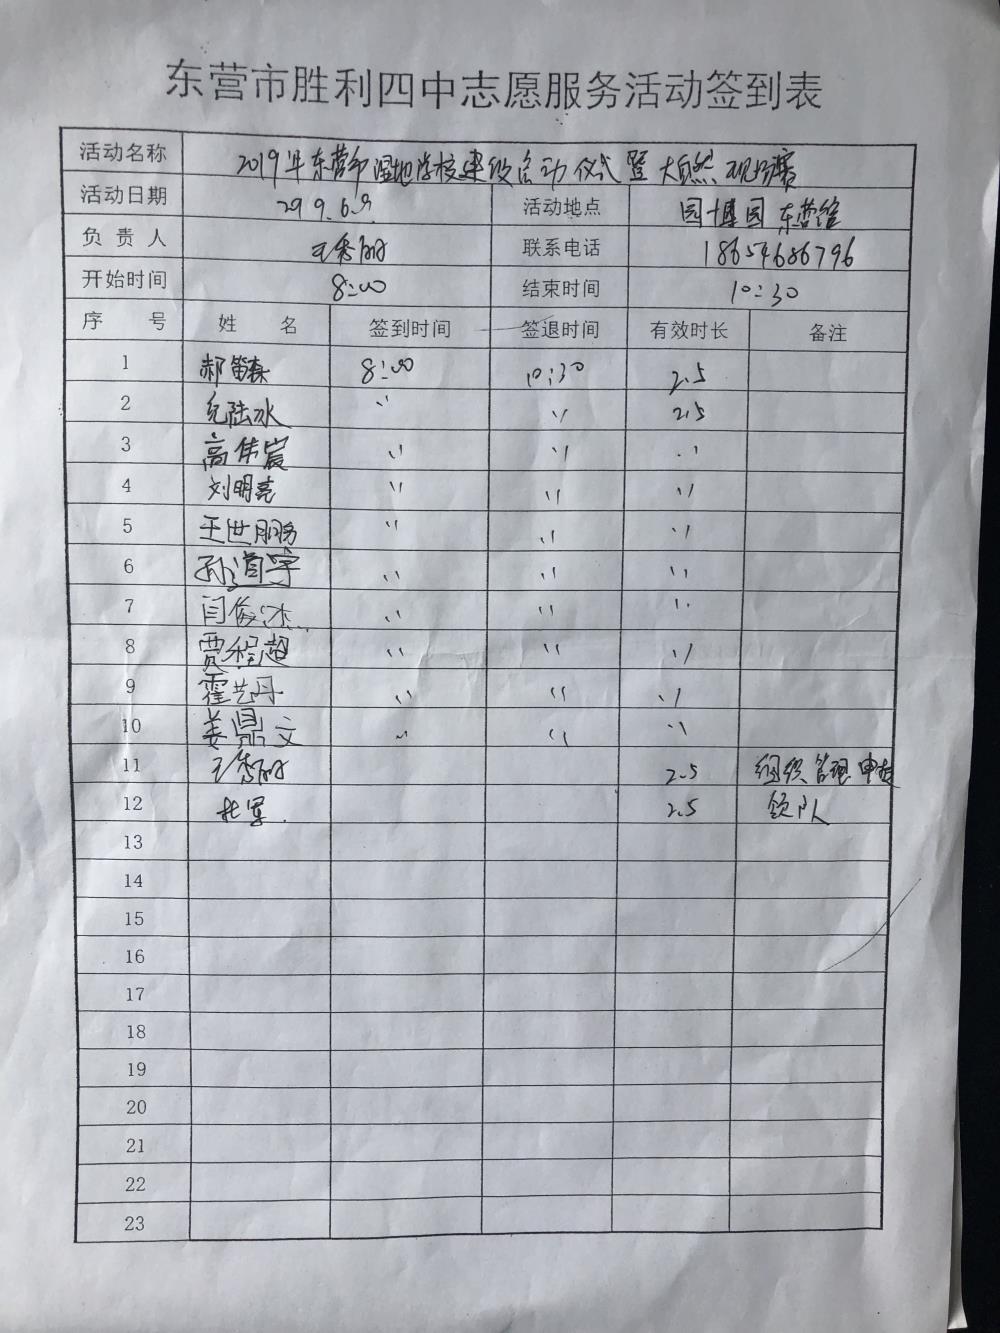 东营市胜利四中志愿服务活动签到表
活动名称 2019年东营市湿地学校建设启动仪式暨大自然观场赛
活动日期 2019.6.9. 活动地点 园博园 东营馆
负责人 王秀丽 联系电话 18654686796
开始时间 8:00 结束时间 10:30
序号 姓名 签到时间 签退时间 有效时长 备注
1 郝笛森 8:00 10:30 2.5
2 纪陆冰 〃 〃 2.5
3 高伟宸 〃 〃 〃
4 刘明亮 〃 〃 〃
5 王世腾 〃 〃 〃
6 孙道宇 〃 〃 〃
7 闫俊杰 〃 〃 〃
8 贾程超 〃 〃 〃
9 霍艺丹 〃 〃 〃
10 姜鼎文 〃 〃 〃
11 王秀丽 2.5 组织管理
12 杜军 2.5 领队
13
14
15
16
17
18
19
20
21
22
23